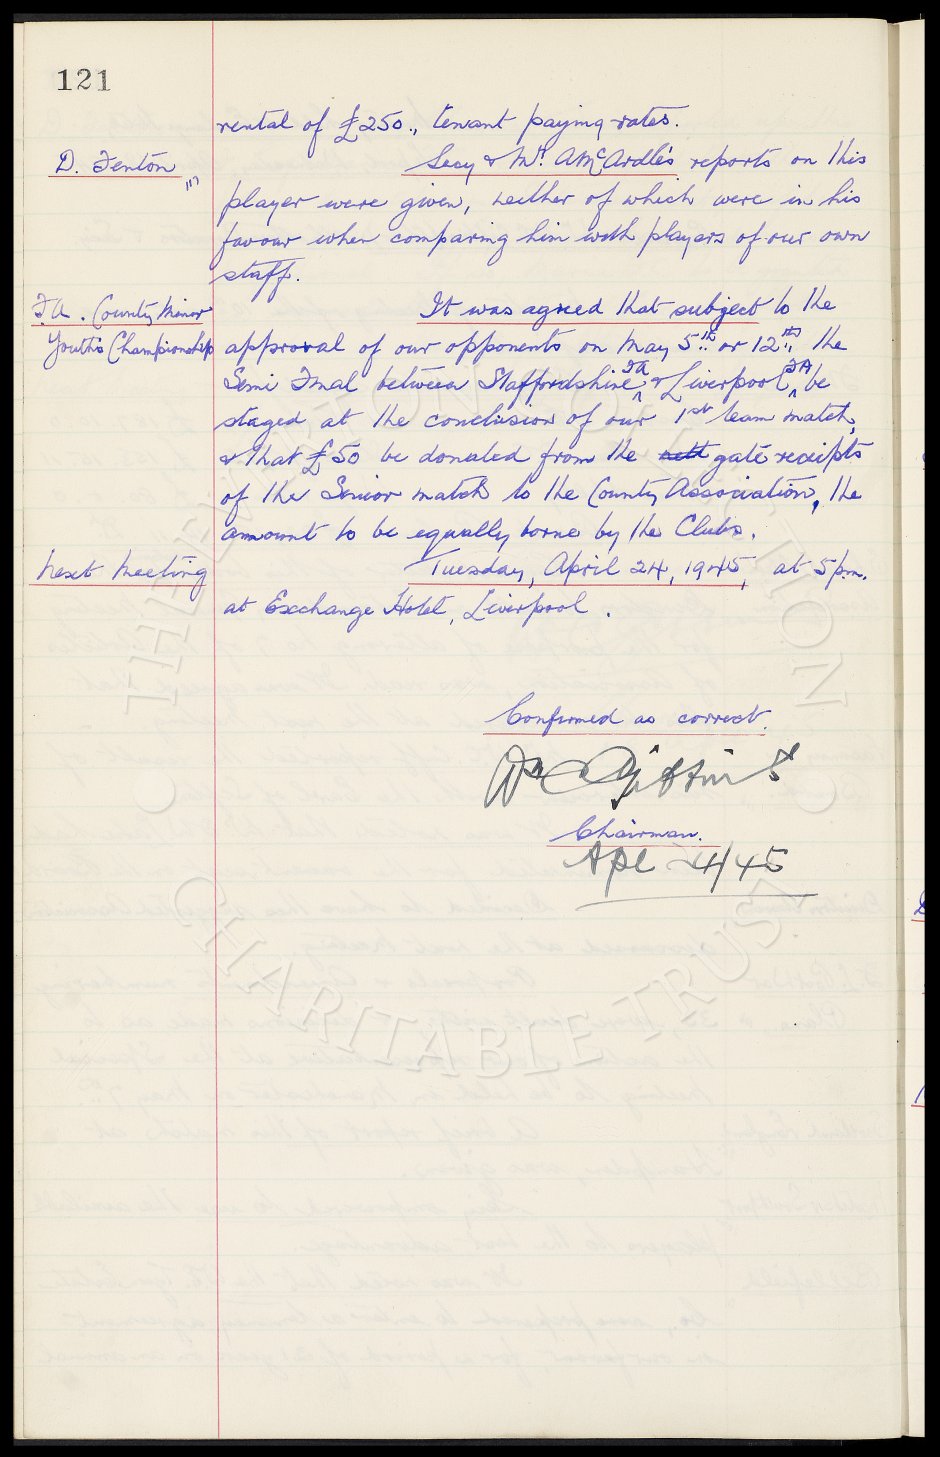 121
rental of £250., tenant paying rates.
D. Fenton Secy & Mr. A McArdle's reports on this
player were given, neither of which were in his
favour when comparing him with players of our own
staff.
F.A. County Minor It was agreed that subject to the
Youths Championship approval of our opponents on May 5th or 12th, the
Semi Final between Staffordshire FA & Liverpool FA be
staged at the conclusion of our 1st team match,
& that £50 be donated from the nett gate receipts
of the Senior match to the County Association, the
amount to be equally borne by the Clubs.
Next Meeting Tuesday, April 24, 1945, at 5 p.m.
at Exchange Hotel, Liverpool.
Confirmed as correct.
Chairman.
Apl 24/45
THE EVERTON COLLECTION
CHARITABLE TRUST